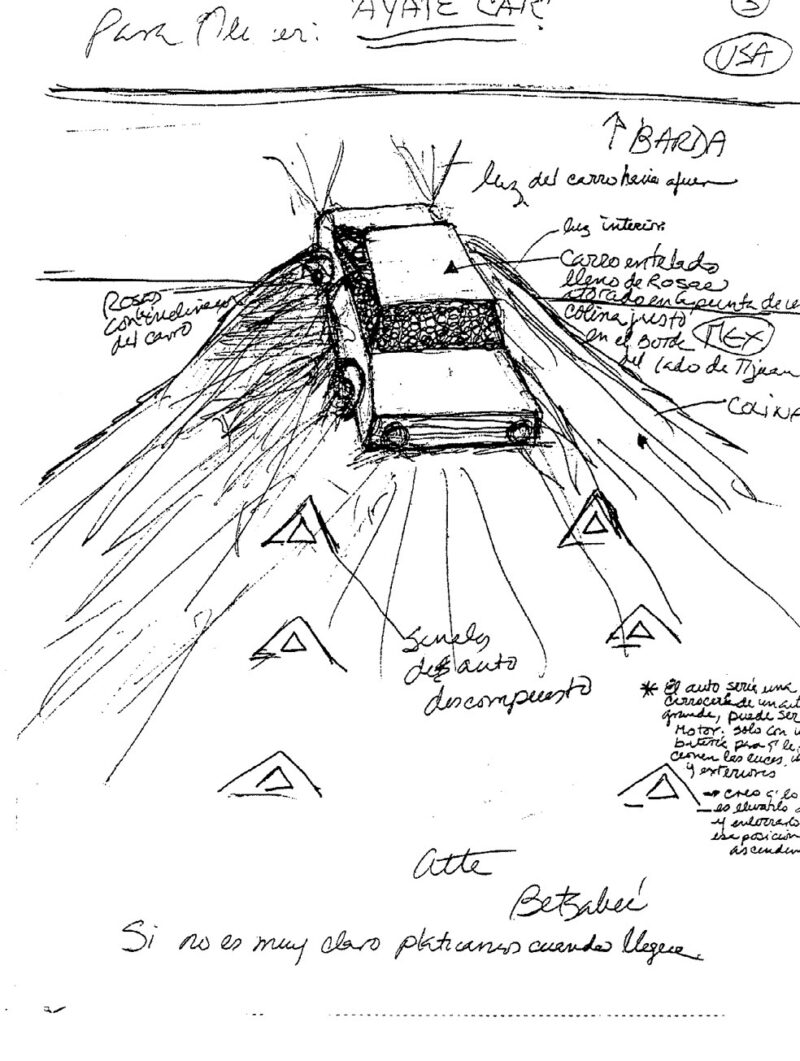 Para
"AYATE CAR"
3
USA
↑ BARDA
luz del carro hacia afuera
luz interior
carro entelado
lleno de Rosas
atorado en la punta de
colina justo
en el Borde MEX
del lado de Tijuan
Rosas
del carro
COLINA
Señales
de auto
descompuesto
* El auto sería una
carrocería de un aut
grande, puede ser
Motor. solo con
batería para q' le
cionen las luces.
y exteriores
→ creo q' lo
es elevarlo
y enterrarlo
esa posición
ascenden
Atte
Betsabeé
Si no es muy claro platicamos cuando llegue.